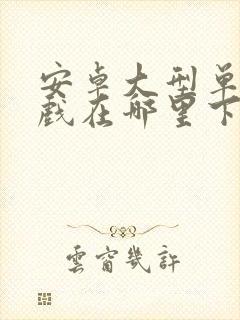 安卓大型单
戏在哪里下
雲窗幾許